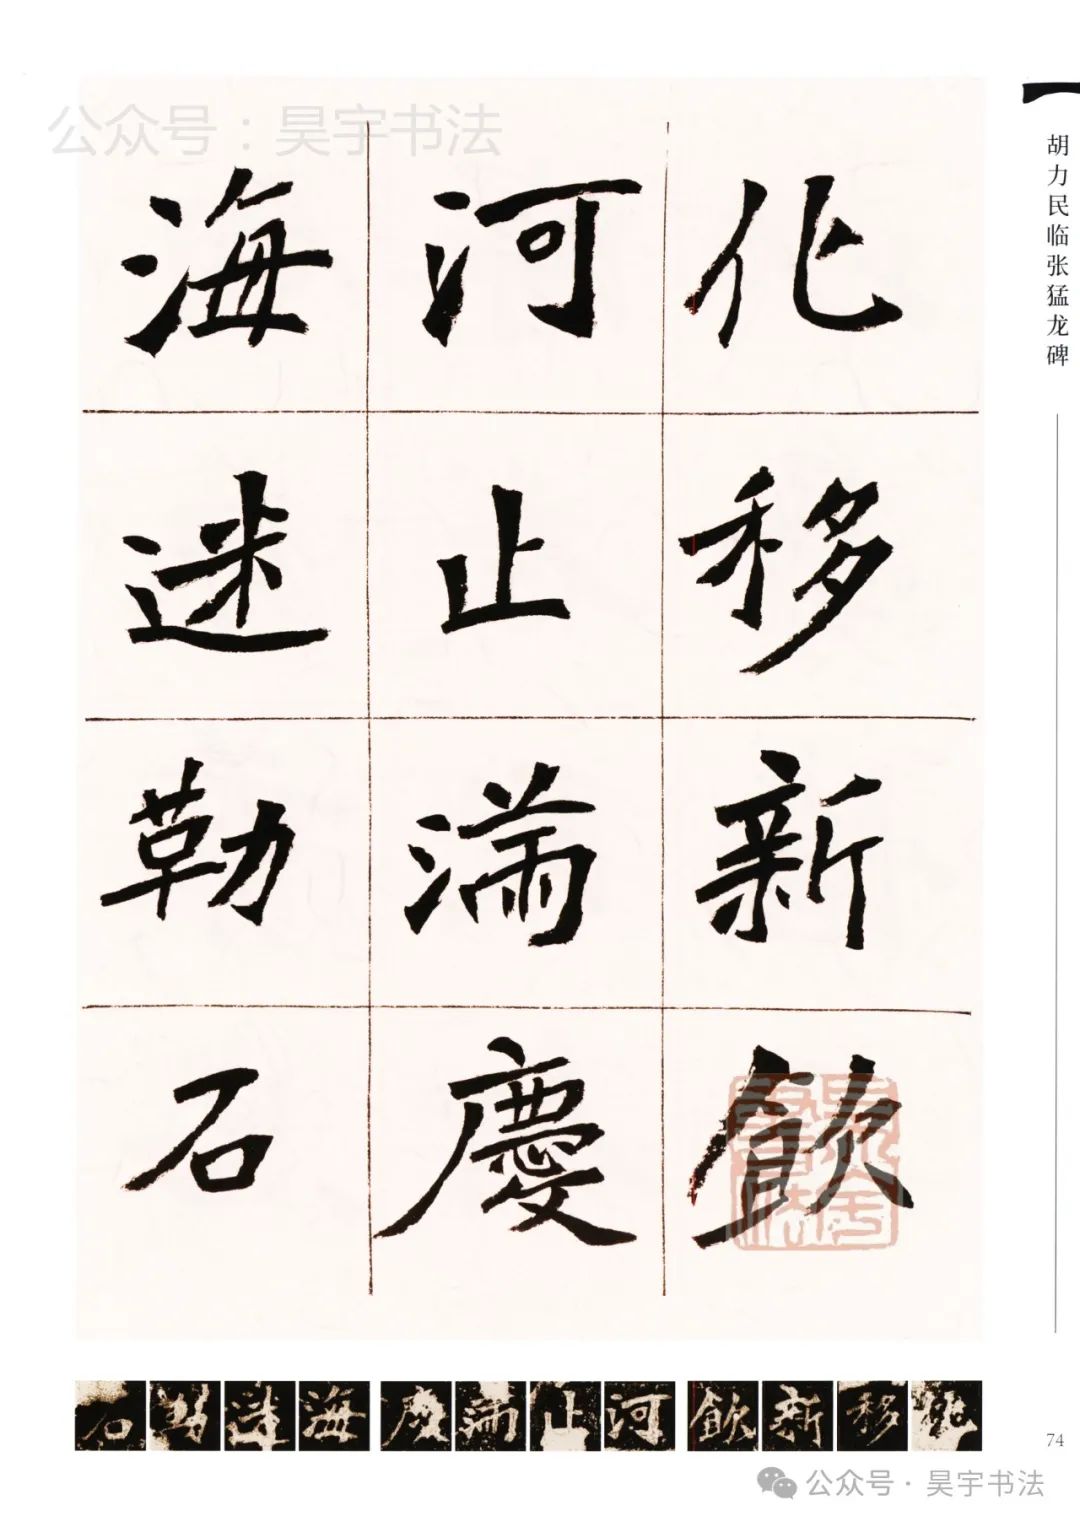 公众号：昊宇书法
胡力民临张猛龙碑
化移新飲
河止満慶
海迷勒石
石勒迷海慶満止河飲新移化
74
公众号·昊宇书法